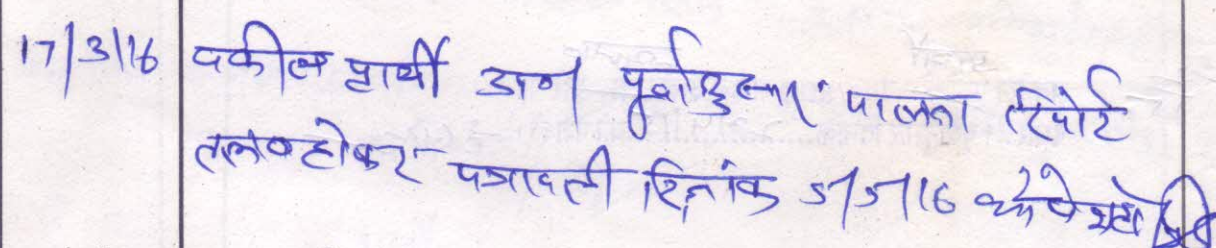 17/3/16 वकील प्रार्थी उप। पूर्वानुसार पालना रिपोर्ट
तलब होकर पत्रावली दिनांक 5/5/16 को पेश हो